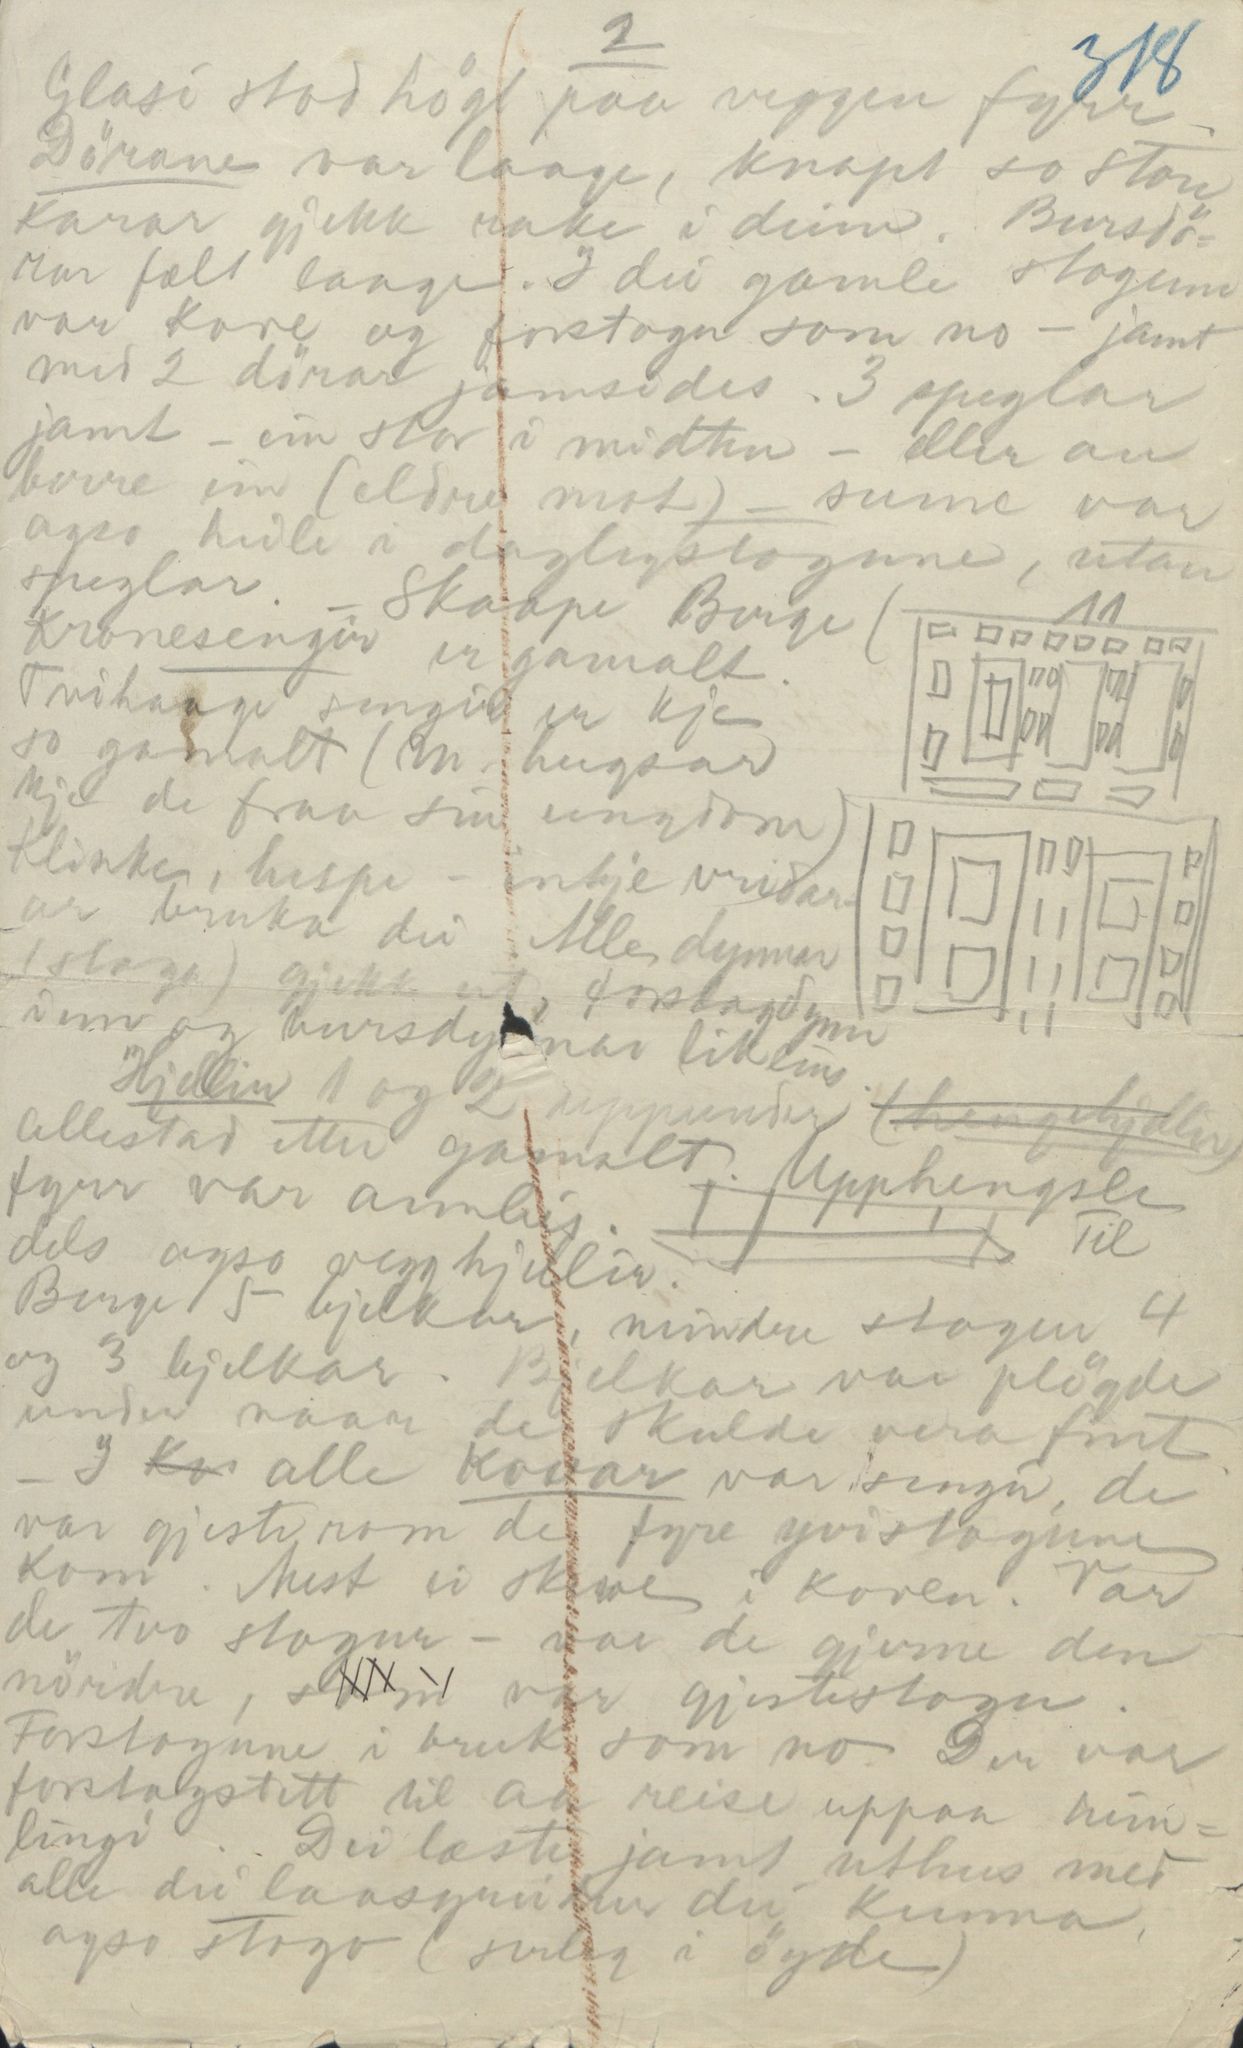 2
318
Glasi stod högt paa veggen fyrr.
Dörane var laage, knapt so store
karar gjekk rake i deim. Bursdö=
rar fælt laage. I dei gamle stogune
var kove og forstogu som no - jamt
med 2 dörar jamsides. 3 speglar
jamt - ein stor i midten - eller au
berre ein (eldre mot) - sume var
ogso heile i daglegstogune, utan
speglar. - Skaape Berge (
Kronesengir er gamalt.
Tvihaage sengir er kje
so gamalt (M. hugsar
kje de fraa sin ungdom)
Klinke, hespe - inkje vridar-
ar bruka dei Alle dynnar
(stoge) gjekk ut, forstogdynn
inn og bursdynnar likeins.
Hjellin 1 og 2 uppunder (hengehjellir)
allestad etter gamalt. Upphengsle
fyrr var annleis. Til
dels ogso vegghjellir.
Berge 5 bjelkar, mindre stogur 4
og 3 bjelkar. Bjelkar var plögde
under naar de skulde vera fint
- I Ko alle Kovar var sengir, de
var gjesterom de fyre yvistogune
kom. Mest ei skive i koven. Var
de tvo stogur - var de gjerne den
nördre, som var gjestestogu.
Forstogune i bruk som no. Der var
forstogstett til aa reise uppaa heim=
lingi. Dei læste jamt uthus med
alle dei laasgreidur dei kunna,
ogso stogo (serleg i öyde)